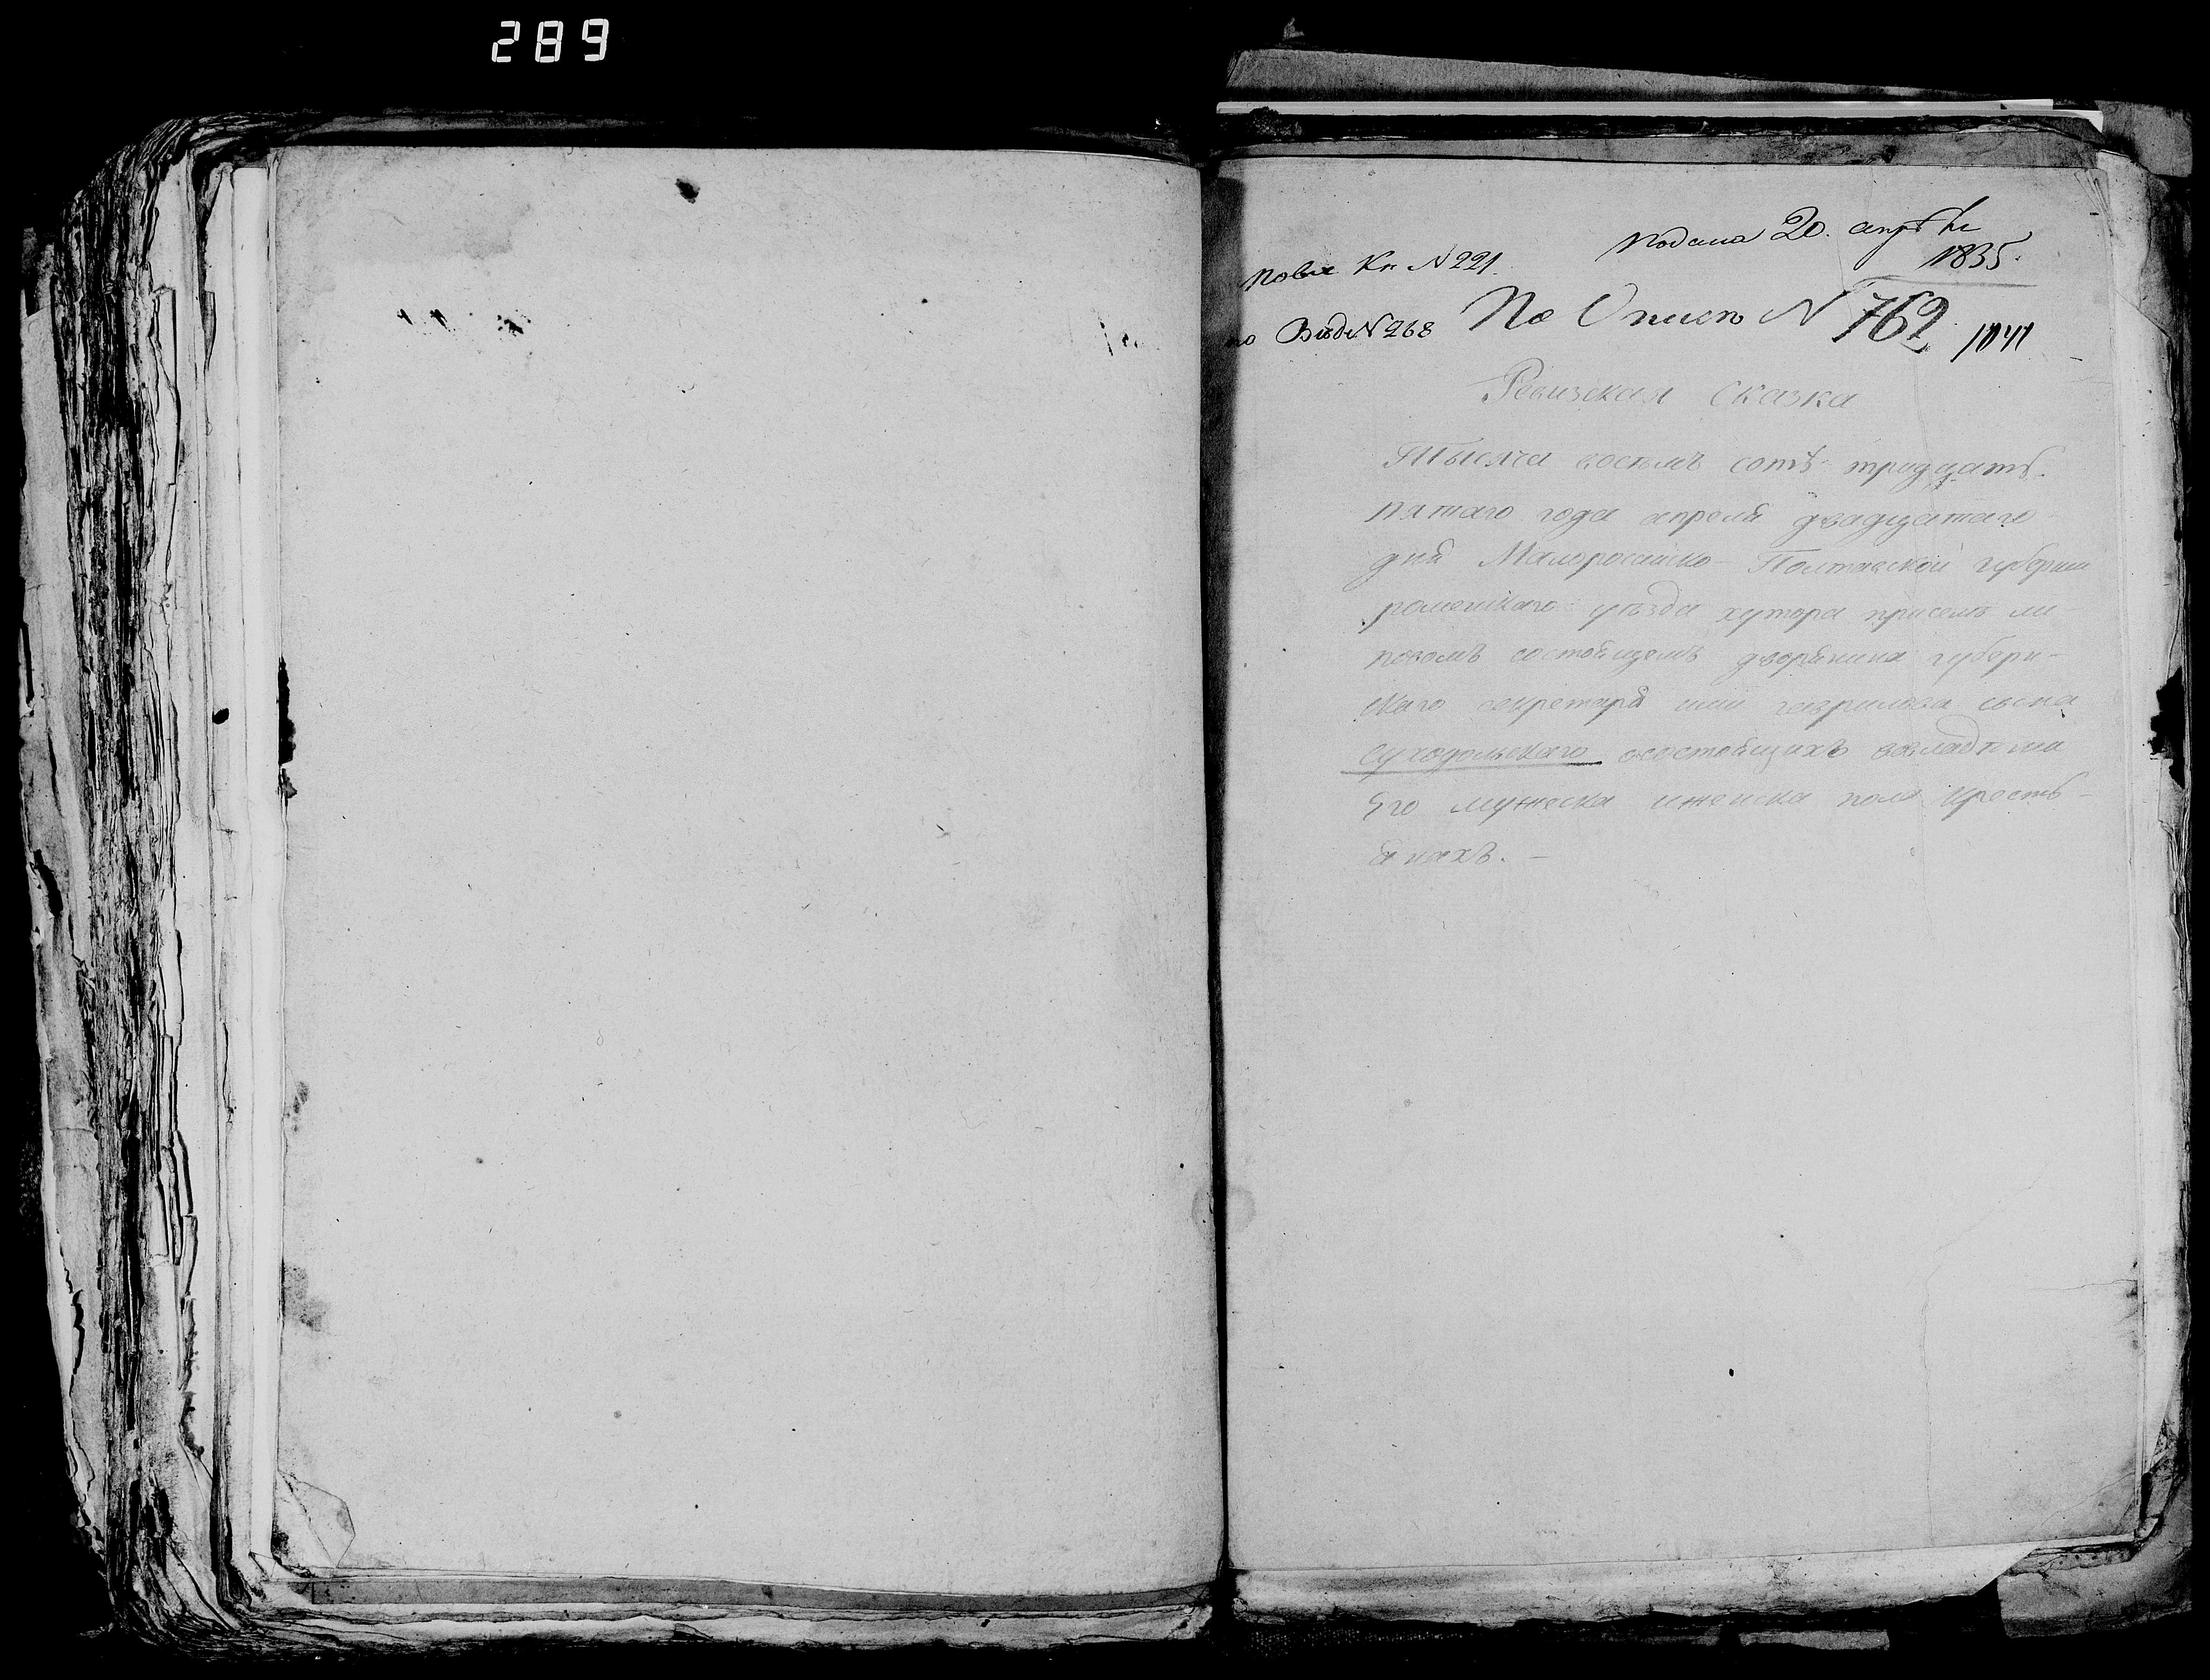 289
подана 20. апрѣля
1835.
по вх Кн N 221.
по Вѣд N 268
По Описи N 762
1041
Ревизская Сказка
Тысяча восемъ сотъ тридцать
пятаго года апреля двадцатаго
дня Малоросийско-Полтавской губернии
роменскаго уѣзда хутора присемъ ли
повомъ состоящемъ дворянина губерн-
скаго секретаря гаврилова сына
Суходольскаго осостоящихъ вовладѣнии
Его мужеска иженска пола кресть-
янахъ. —